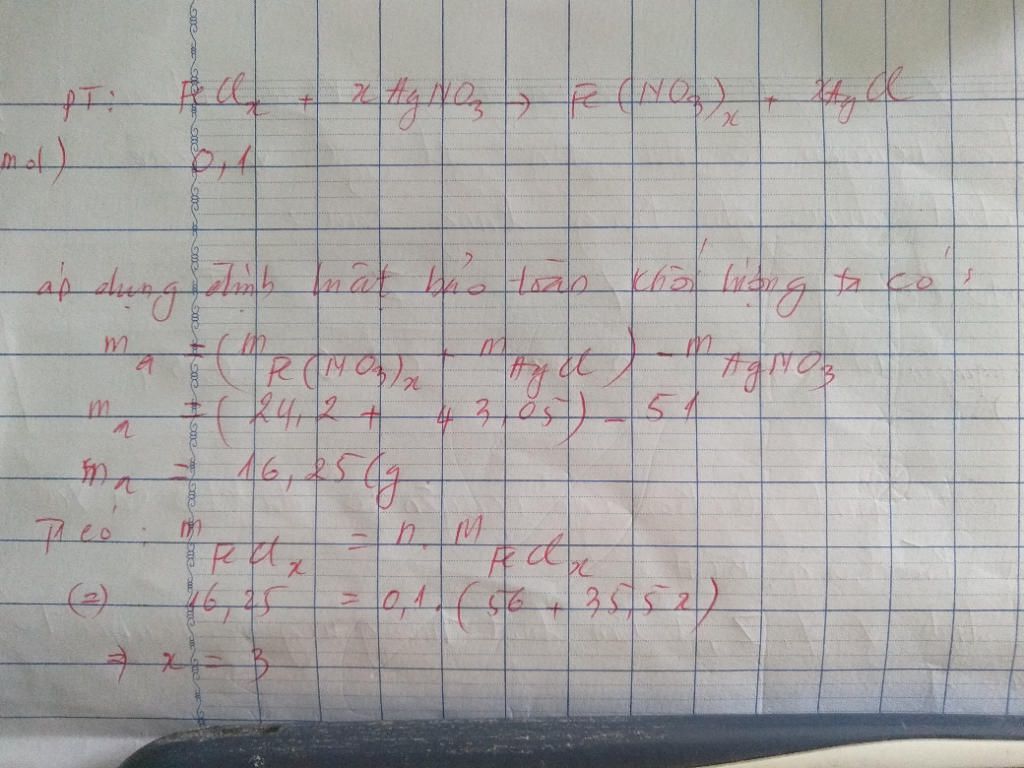 PT: FeClx + xAgNO3 → Fe(NO3)x + xAgCl
mol) 0,1
áp dụng định luật bảo toàn khối lượng ta có:
ma = (mFe(NO3)x + mAgCl) - mAgNO3
ma = (24,2 + 43,05) - 51
ma = 16,25(g
Ta có: mFeClx = n. MFeClx
(=) 16,25 = 0,1.(56 + 35,5x)
⇒ x = 3